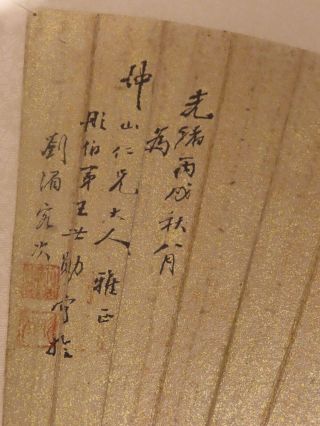 光緒丙戌秋八月
為
仲山仁兄大人雅正
彤伯弟王世勛寫於
劉客次